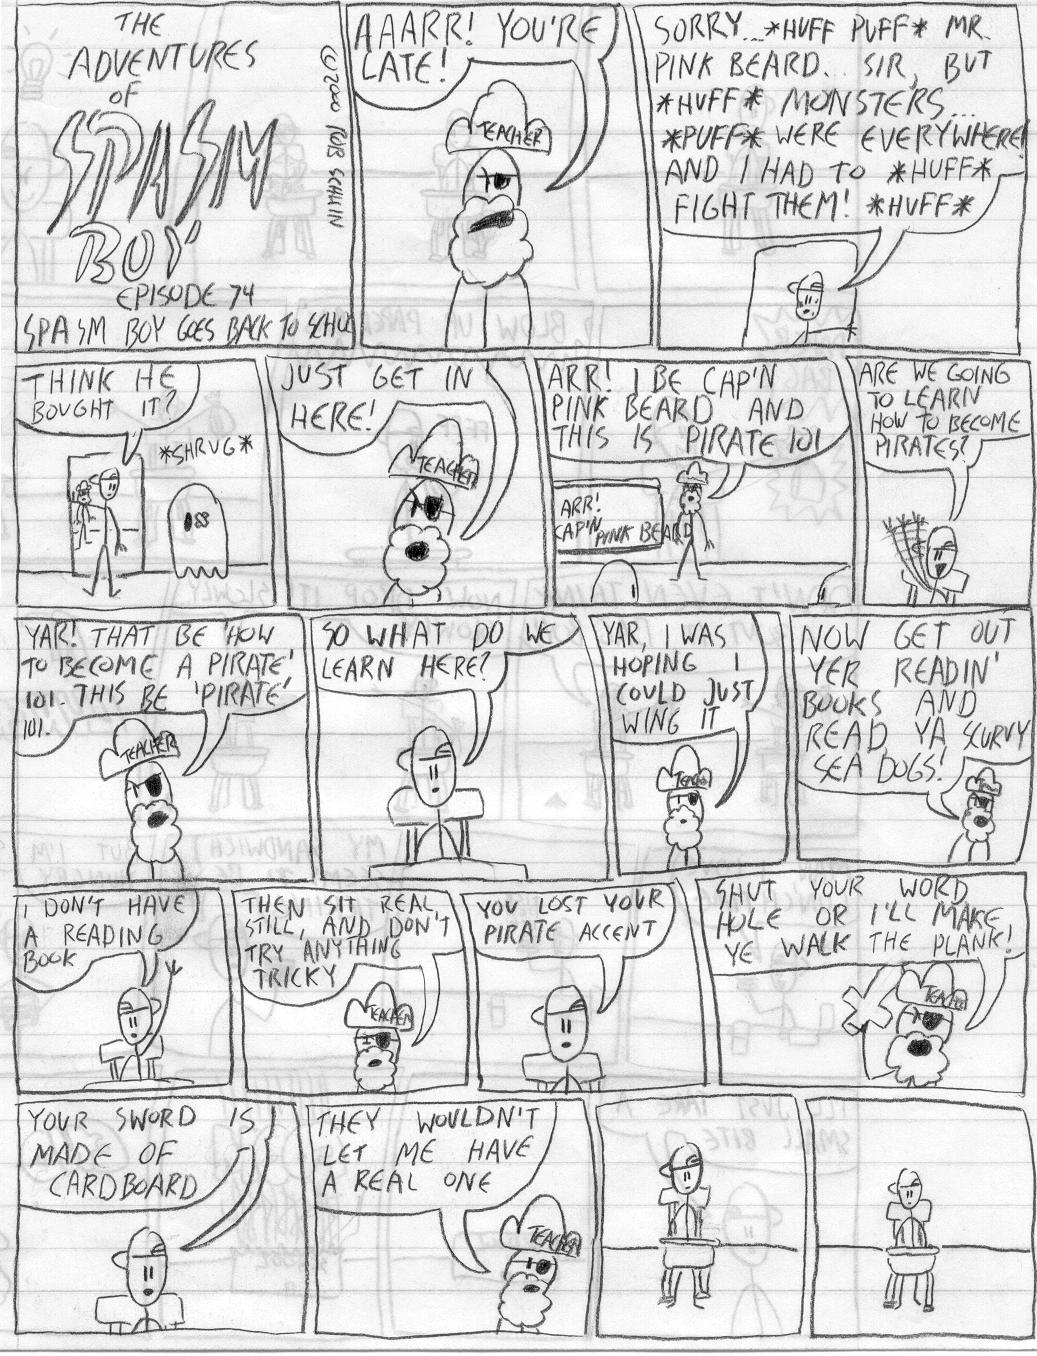 THE
ADVENTURES
OF
SPASM
BOY
EPISODE 74
SPASM BOY GOES BACK TO SCHOOL
(C)2000 ROB SCHLIN
AAARR! YOU'RE
LATE!
TEACHER
SORRY...*HUFF PUFF* MR.
PINK BEARD... SIR, BUT
*HUFF* MONSTERS...
*PUFF* WERE EVERYWHERE!
AND I HAD TO *HUFF*
FIGHT THEM! *HUFF*
THINK HE
BOUGHT IT?
*SHRUG*
JUST GET IN
HERE!
TEACHER
ARR! I BE CAP'N
PINK BEARD AND
THIS IS PIRATE 101
ARR!
CAP'N PINK BEARD
ARE WE GOING
TO LEARN
HOW TO BECOME
PIRATES?
YAR! THAT BE 'HOW
TO BECOME A PIRATE'
101. THIS BE 'PIRATE'
101.
TEACHER
SO WHAT DO WE
LEARN HERE?
YAR, I WAS
HOPING I
COULD JUST
WING IT
TEACHER
NOW GET OUT
YER READIN'
BOOKS AND
READ, YA SCURVY
SEA DOGS!
I DON'T HAVE
A READING
BOOK
THEN SIT REAL
STILL, AND DON'T
TRY ANYTHING
TRICKY
TEACHER
YOU LOST YOUR
PIRATE ACCENT
SHUT YOUR WORD
HOLE OR I'LL MAKE
YE WALK THE PLANK!
TEACHER
YOUR SWORD IS
MADE OF
CARDBOARD
THEY WOULDN'T
LET ME HAVE
A REAL ONE
TEACHER